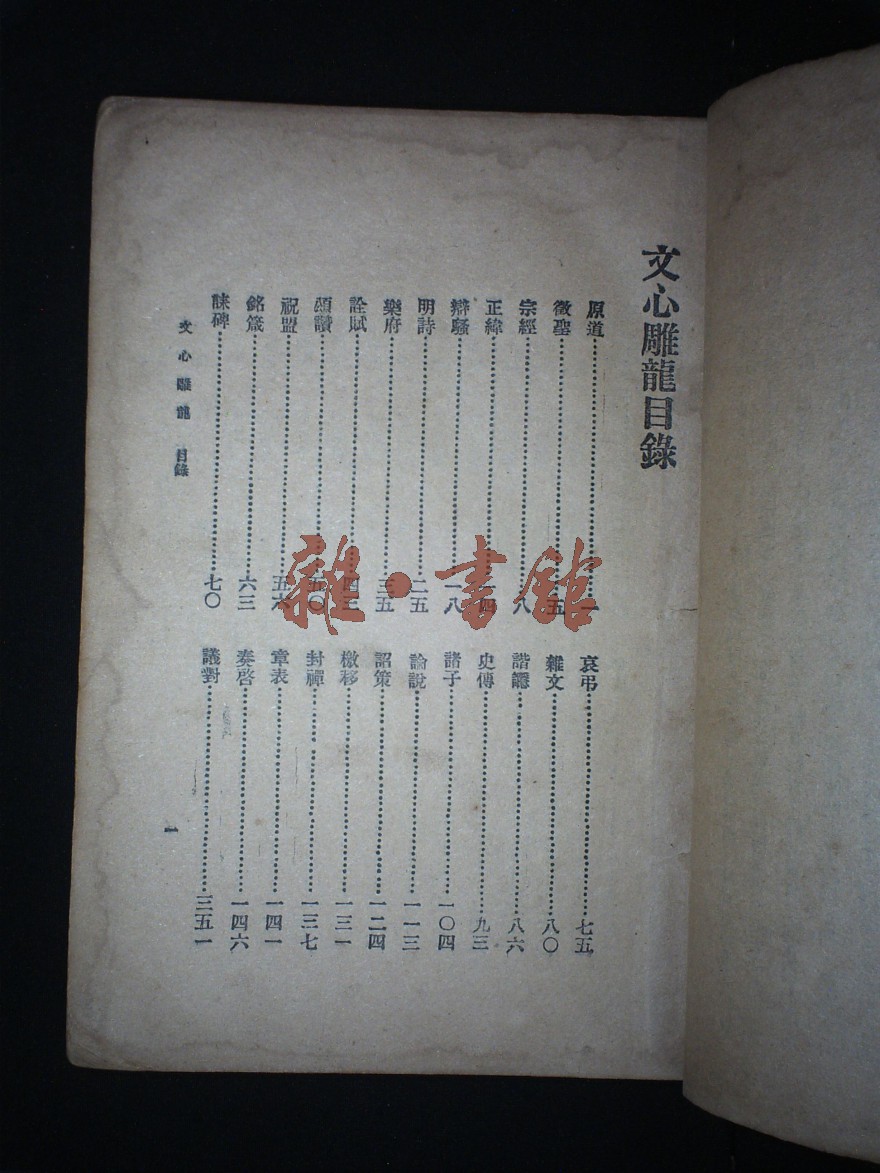 文心雕龍目錄
原道……一
徵聖……五
宗經……八
正緯……四
辯騷……一八
明詩……二五
樂府……三五
詮賦……
頌讚……五〇
祝盟……五六
銘箴……六三
誄碑……七〇
哀弔……七五
雜文……八〇
諧讔……八六
史傳……九三
諸子……一〇四
論說……一一三
詔策……一二四
檄移……一三一
封禪……一三七
章表……一四一
奏啓……一四六
議對……三五一
文心雕龍 目錄
一
雜·書館